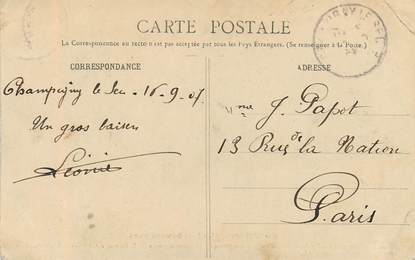 CARTE POSTALE
La Correspondance au recto n'est pas acceptée par tous les Pays Etrangers. (Se renseigner à la Poste).
CORRESPONDANCE
ADRESSE
Champigny le Sec - 16-9-07
Un gros baiser
Léonie
Mme J. Papot
13 Rue de la Nation
Paris